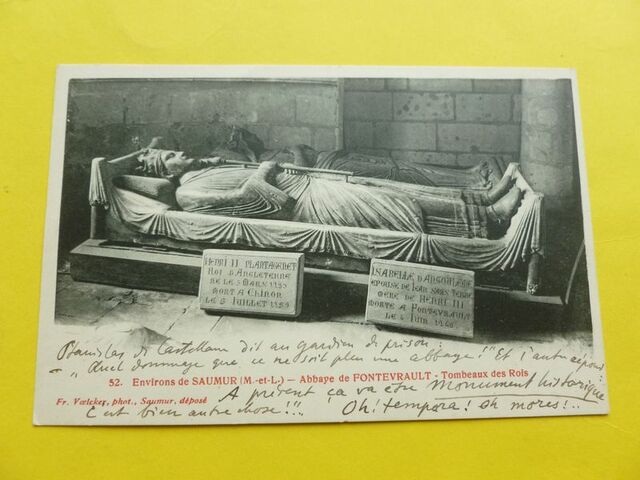 HENRI II PLANTAGENET
ROI D'ANGLETERRE
NE LE 5 MARS 1133
MORT A CHINON
LE 6 JUILLET 1189
ISABELLE D'ANGOULEME
EPOUSE DE JEAN SANS TERRE
MERE DE HENRI III
MORTE A FONTEVRAULT
LE 4 JUIN 1246
Stanislas de Castellane dit au gardien de prison :
"Quel dommage que ce ne soit plus une abbaye !" Et l'autre répond :
52. Environs de SAUMUR (M.-et-L.) — Abbaye de FONTEVRAULT - Tombeaux des Rois
"A présent ça va être Monument historique
Fr. Vœlcker, phot., Saumur, déposé
C'est bien autre chose !!" Oh! tempora! oh mores!..